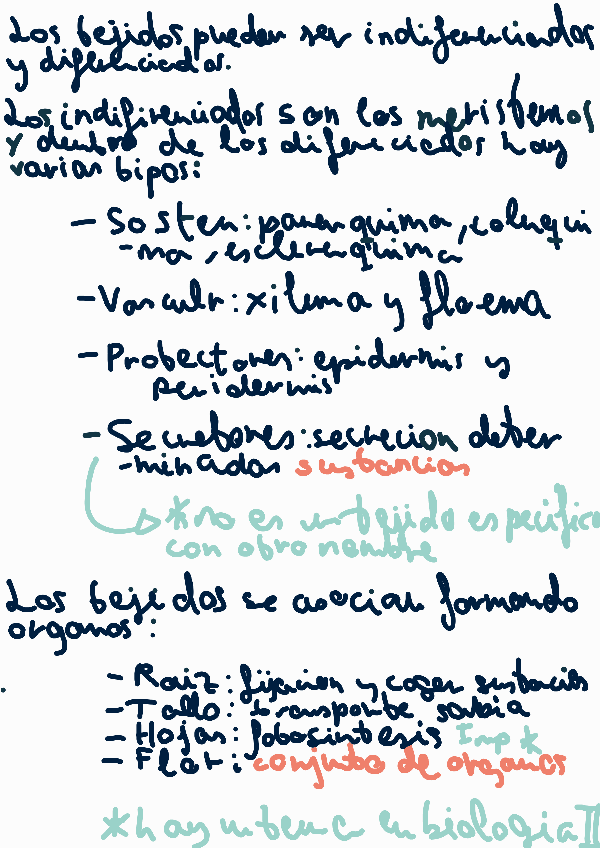 Los tejidos pueden ser indiferenciados
y diferenciados.
Los indifirenciados son los meristemos
y dentro de los diferenciados hay
varias tipos:
- Sosten: parenquima, colenqui
-ma, esclerenquima
- Vascular: xilema y floema
- Protectores: epidermis y
peridermis
- Secretores: secrecion deter
-minadas sustancias
*no es un tejido especifico
con otro nombre
Los tejidos se asocian formando
organos:
- Raiz: fijacion y coger sustancias
- Tallo: transporte sabia
- Hojas: fotosintesis Imp*
- Flor: conjunto de organos
*hay un tema en biologia II